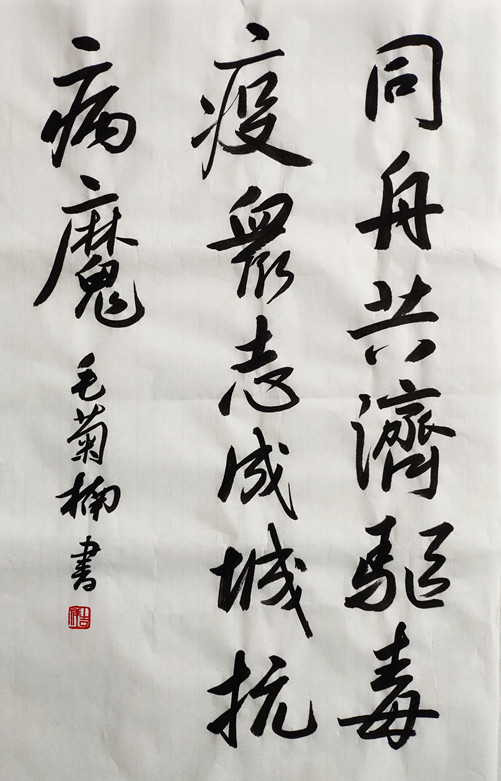 同舟共濟驅毒
疫眾志成城抗
病魔
毛菊楠書